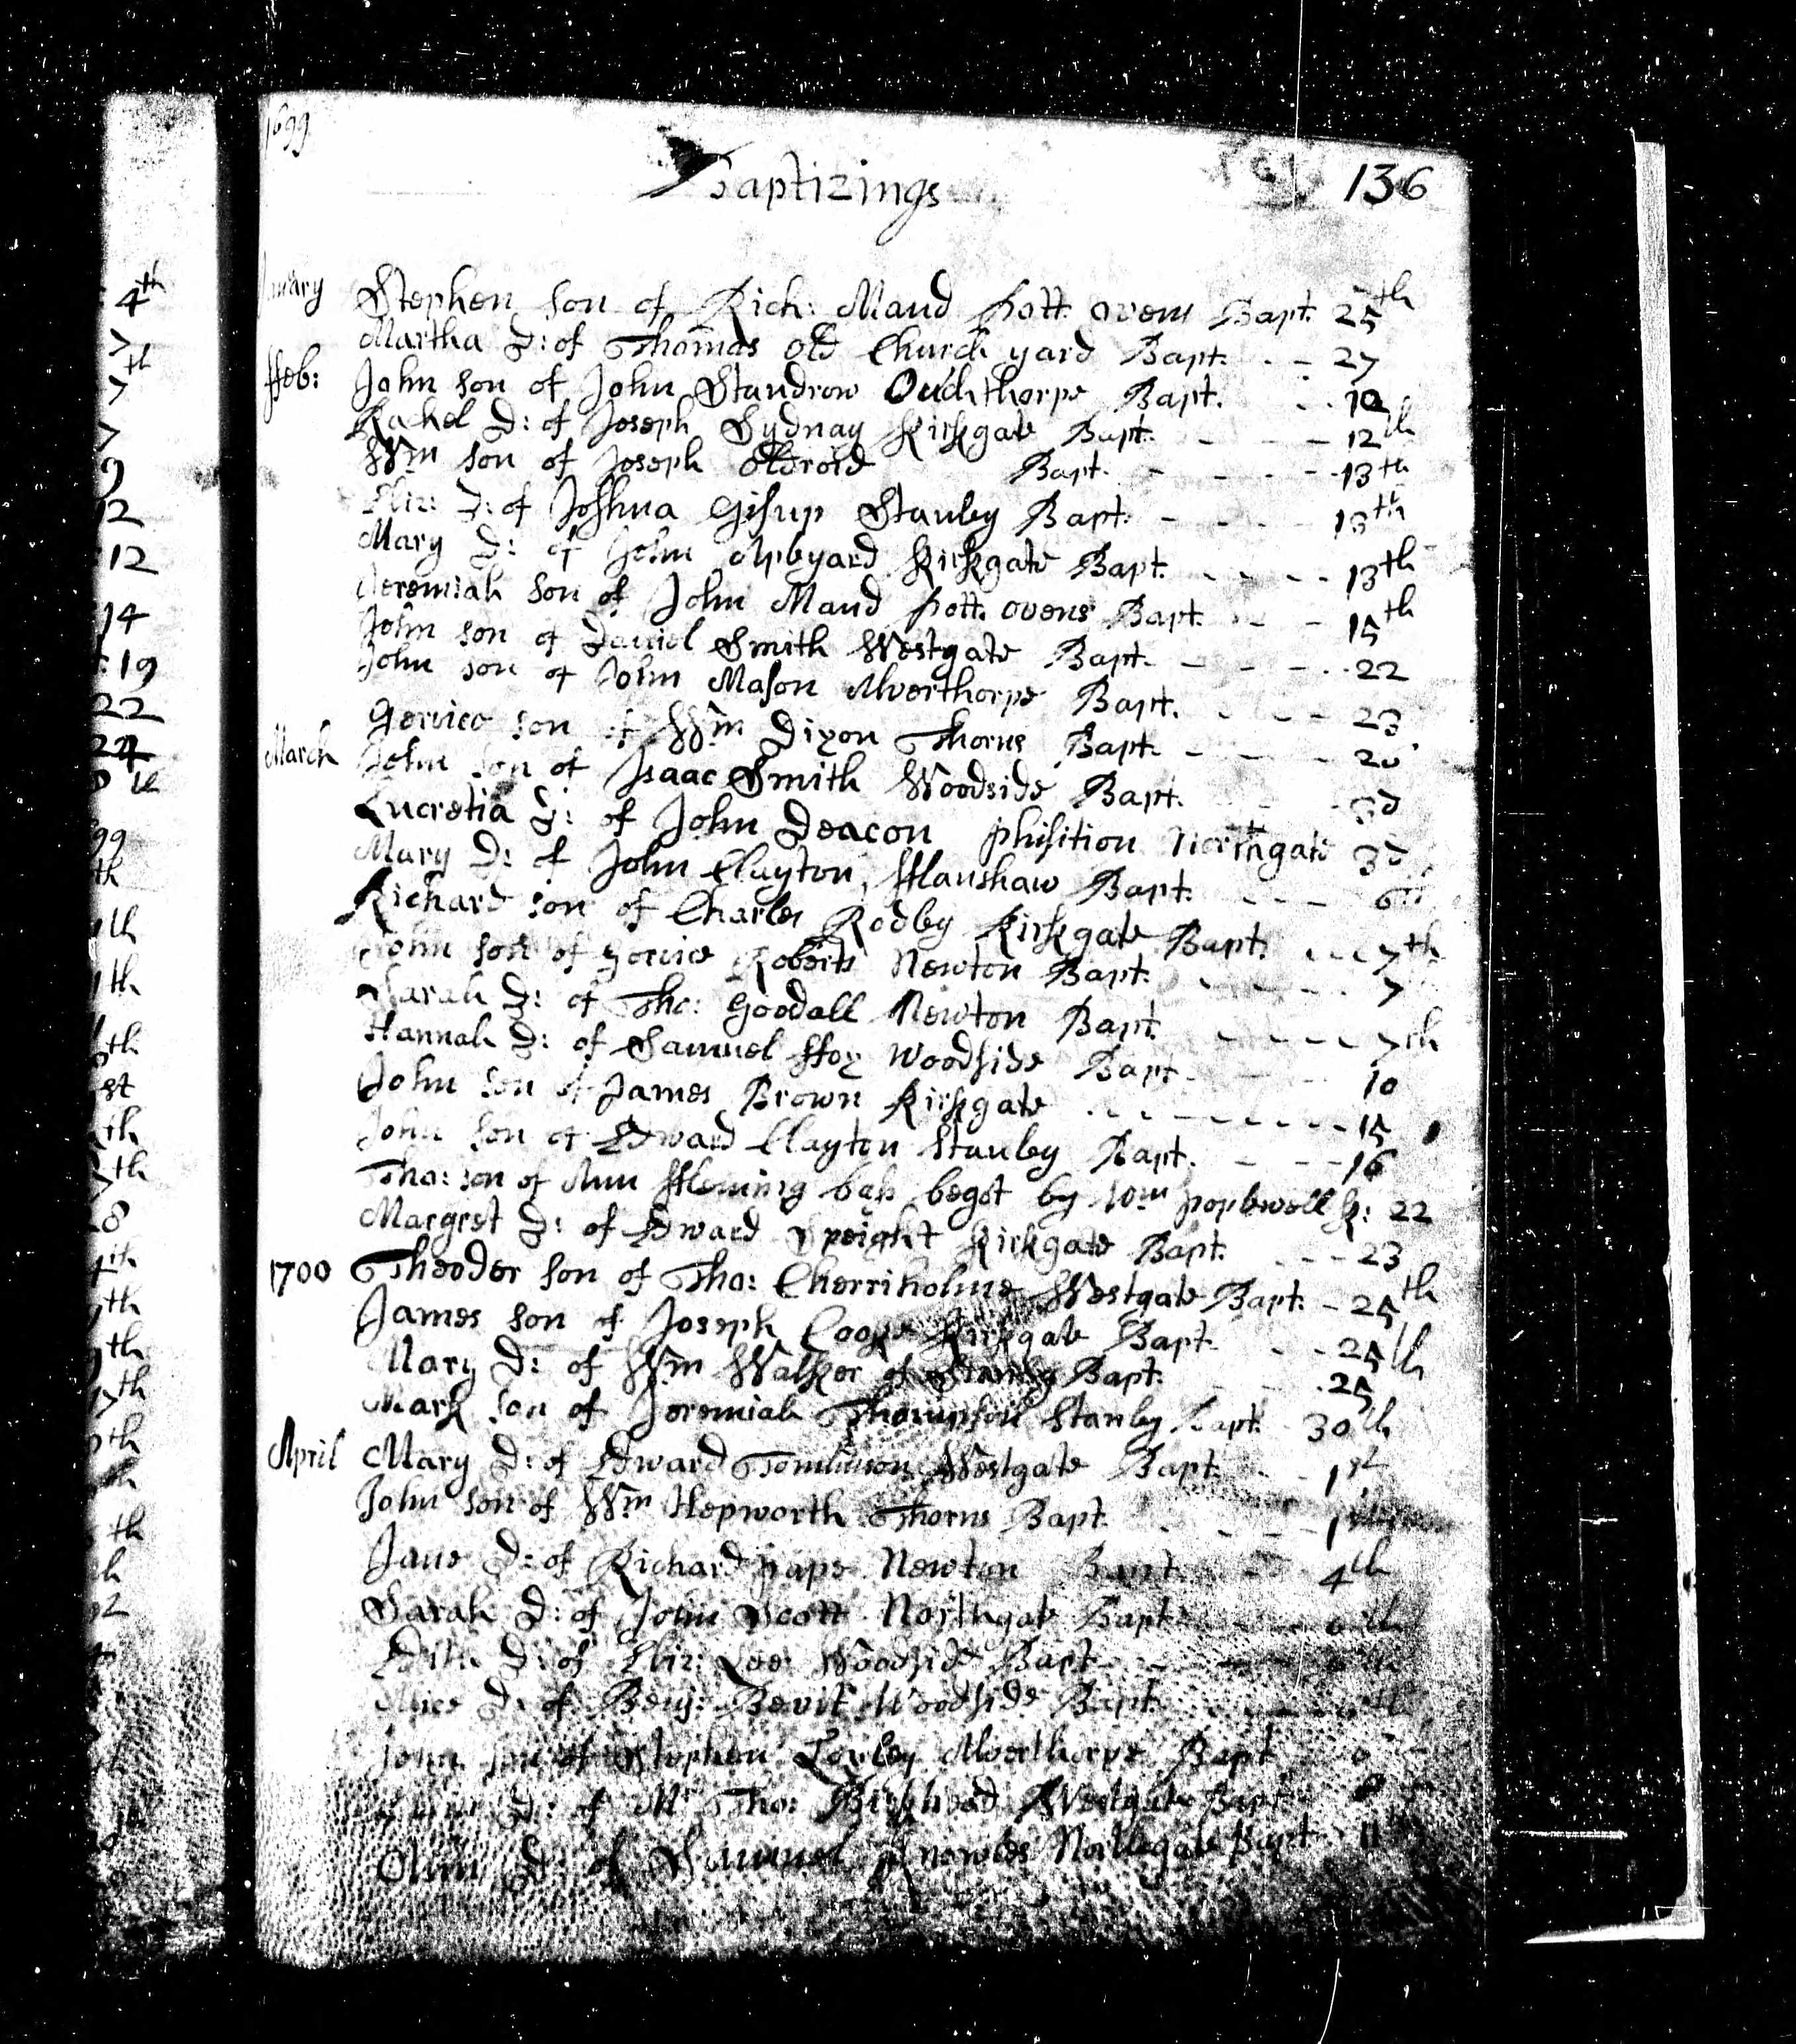 1699
Baptizings 136
nuary Stephen son of Rich: Maud pott. ovens Bapt. 25th
Martha D: of Thomas old Church yard Bapt. 27
ffeb: John son of John Standrow Ouchthorpe Bapt. 10
Rachel D: of Joseph Sydnay Kirkgate Bapt. 12th
Wm son of Joseph oldroid Bapt. 13th
Eliz: D: of Joshua Gisup Stanley Bapt. 13th
Mary D: of John Apleyard Kirkgate Bapt. 13th
Jeremiah son of John Maud pott. ovens Bapt. 15th
John son of Daniel Smith Westgate Bapt. 22
John son of John Mason Alverthorpe Bapt. 23
Gervice son of Wm Dixon Thorns Bapt.
March John son of Isaac Smith Woodside Bapt. 3d
Lucretia D: of John Deacon phisition Northgate 3d
Mary D: of John Clayton, fflanshaw Bapt. 6th
Richard son of Charles Rodby Kirkgate Bapt. 7th
John son of Gervice Roberts Newton Bapt. 7
Sarah D: of Tho: Goodall Newton Bapt. 7th
Hannah D: of Samuel ffox Woodside Bapt. 10
John son of James Brown Kirkgate 15
John son of Edward Clayton Stanley Bapt. 16
Tho: son of Ann ffleming bast begot by Wm poplewell K: 22
Margret D: of Edward Speight Kirkgate Bapt. 23
1700 Theoder son of Tho: Cherriholme Westgate Bapt. 25th
James son of Joseph Cooke Kirkgate Bapt. 25th
Mary D: of Wm Walker of Stanley Bapt. 25
Mark son of Jeremiah Thompson Stanley Bapt. 30th
April Mary D: of Edward Tomlinson Westgate Bapt. 1st
John son of Wm Hepworth Thorns Bapt. 1
Jane D: of Richard pape Newton Bapt. 4th
Sarah D: of John Scott Northgate Bapt.
D: of Eliz: Lee Woodside Bapt.
Alice D: of Benj: Bevit Woodside Bapt.
John son of Stephen Loxley Alverthorpe Bapt
D: of Mr Tho: Birkhead Westgate Bapt.
D: of Samuel Knowles Northgate Bapt 11